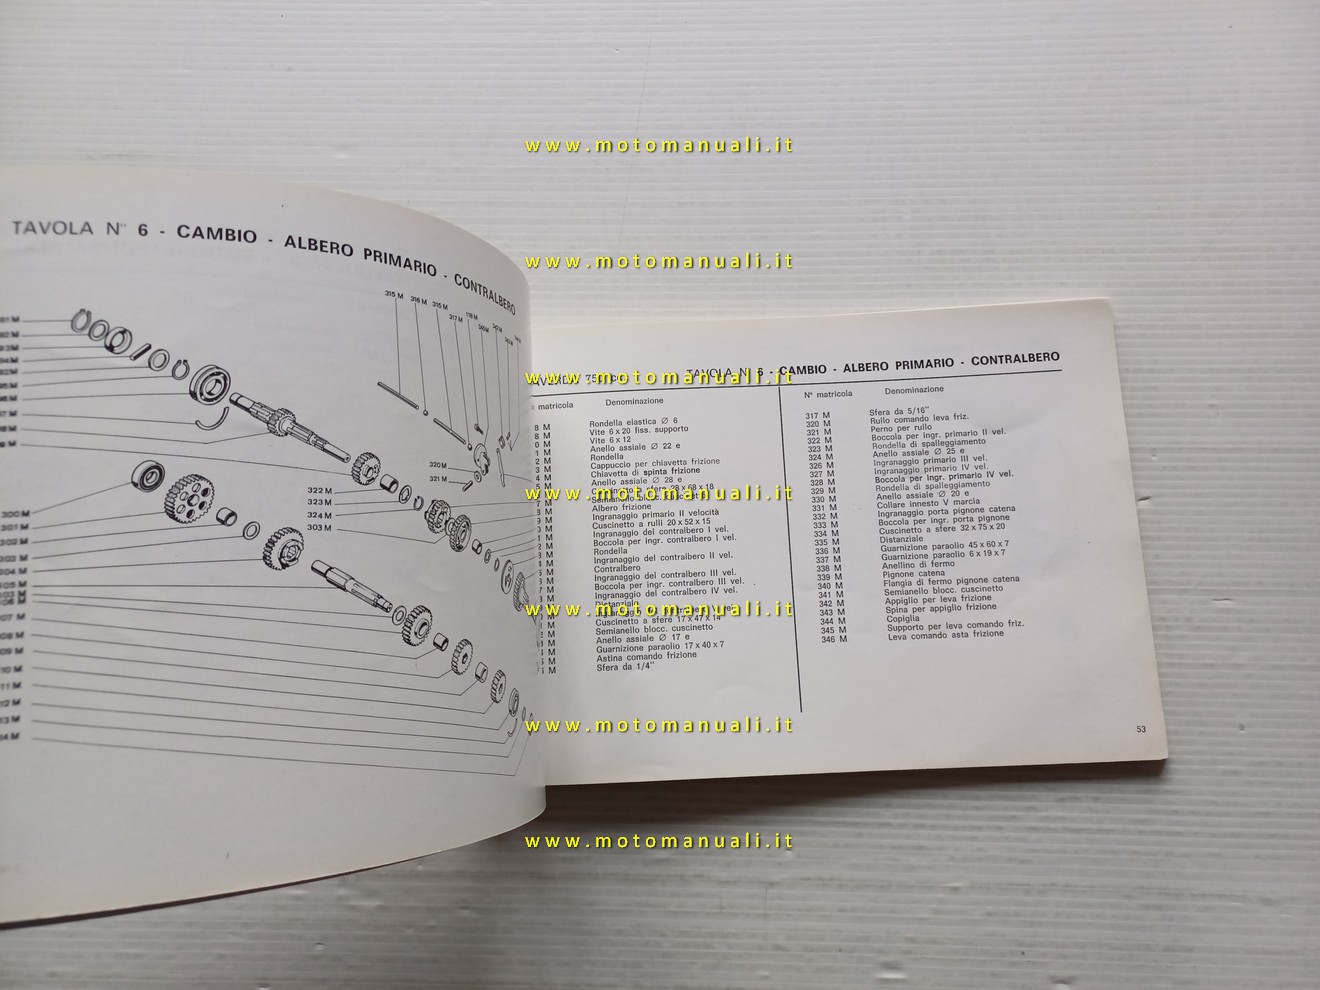 www.motomanuali.it
TAVOLA N° 6 - CAMBIO - ALBERO PRIMARIO - CONTRALBERO
315 M
316 M
315 M
317 M
118 M
320 M
321 M
322 M
323 M
324 M
303 M
300 M
301 M
www.motomanuali.it
TAVOLA N° 6 - CAMBIO - ALBERO PRIMARIO - CONTRALBERO
www.motomanuali.it
matricola Denominazione
Rondella elastica ∅ 6
Vite 6 x 20 fiss. supporto
Vite 6 x 12
Anello assiale ∅ 22 e
Rondella
Cappuccio per chiavetta frizione
Chiavetta di spinta frizione
Anello assiale ∅ 28 e
www.motomanuali.it
Albero frizione
Ingranaggio primario II velocità
Cuscinetto a rulli 20 x 52 x 15
Ingranaggio del contralbero I vel.
Boccola per ingr. contralbero I vel.
Rondella
Ingranaggio del contralbero II vel.
Contralbero
Ingranaggio del contralbero III vel.
Boccola per ingr. contralbero III vel.
Ingranaggio del contralbero IV vel.
Distanziale
www.motomanuali.it
Cuscinetto a sfere 17 x 47 x 14
Semianello blocc. cuscinetto
Anello assiale ∅ 17 e
Guarnizione paraolio 17 x 40 x 7
Astina comando frizione
Sfera da 1/4"
N° matricola Denominazione
317 M Sfera da 5/16"
320 M Rullo comando leva friz.
321 M Perno per rullo
322 M Boccola per ingr. primario II vel.
323 M Rondella di spalleggiamento
324 M Anello assiale ∅ 25 e
326 M Ingranaggio primario III vel.
327 M Ingranaggio primario IV vel.
328 M Boccola per ingr. primario IV vel.
329 M Rondella di spalleggiamento
330 M Anello assiale ∅ 20 e
331 M Collare innesto V marcia
332 M Ingranaggio porta pignone catena
333 M Boccola per ingr. porta pignone
334 M Cuscinetto a sfere 32 x 75 x 20
335 M Distanziale
336 M Guarnizione paraolio 45 x 60 x 7
337 M Guarnizione paraolio 6 x 19 x 7
338 M Anellino di fermo
339 M Pignone catena
340 M Flangia di fermo pignone catena
341 M Semianello blocc. cuscinetto
342 M Appiglio per leva frizione
343 M Spina per appiglio frizione
344 M Copiglia
345 M Supporto per leva comando friz.
346 M Leva comando asta frizione
www.motomanuali.it
53
www.motomanuali.it